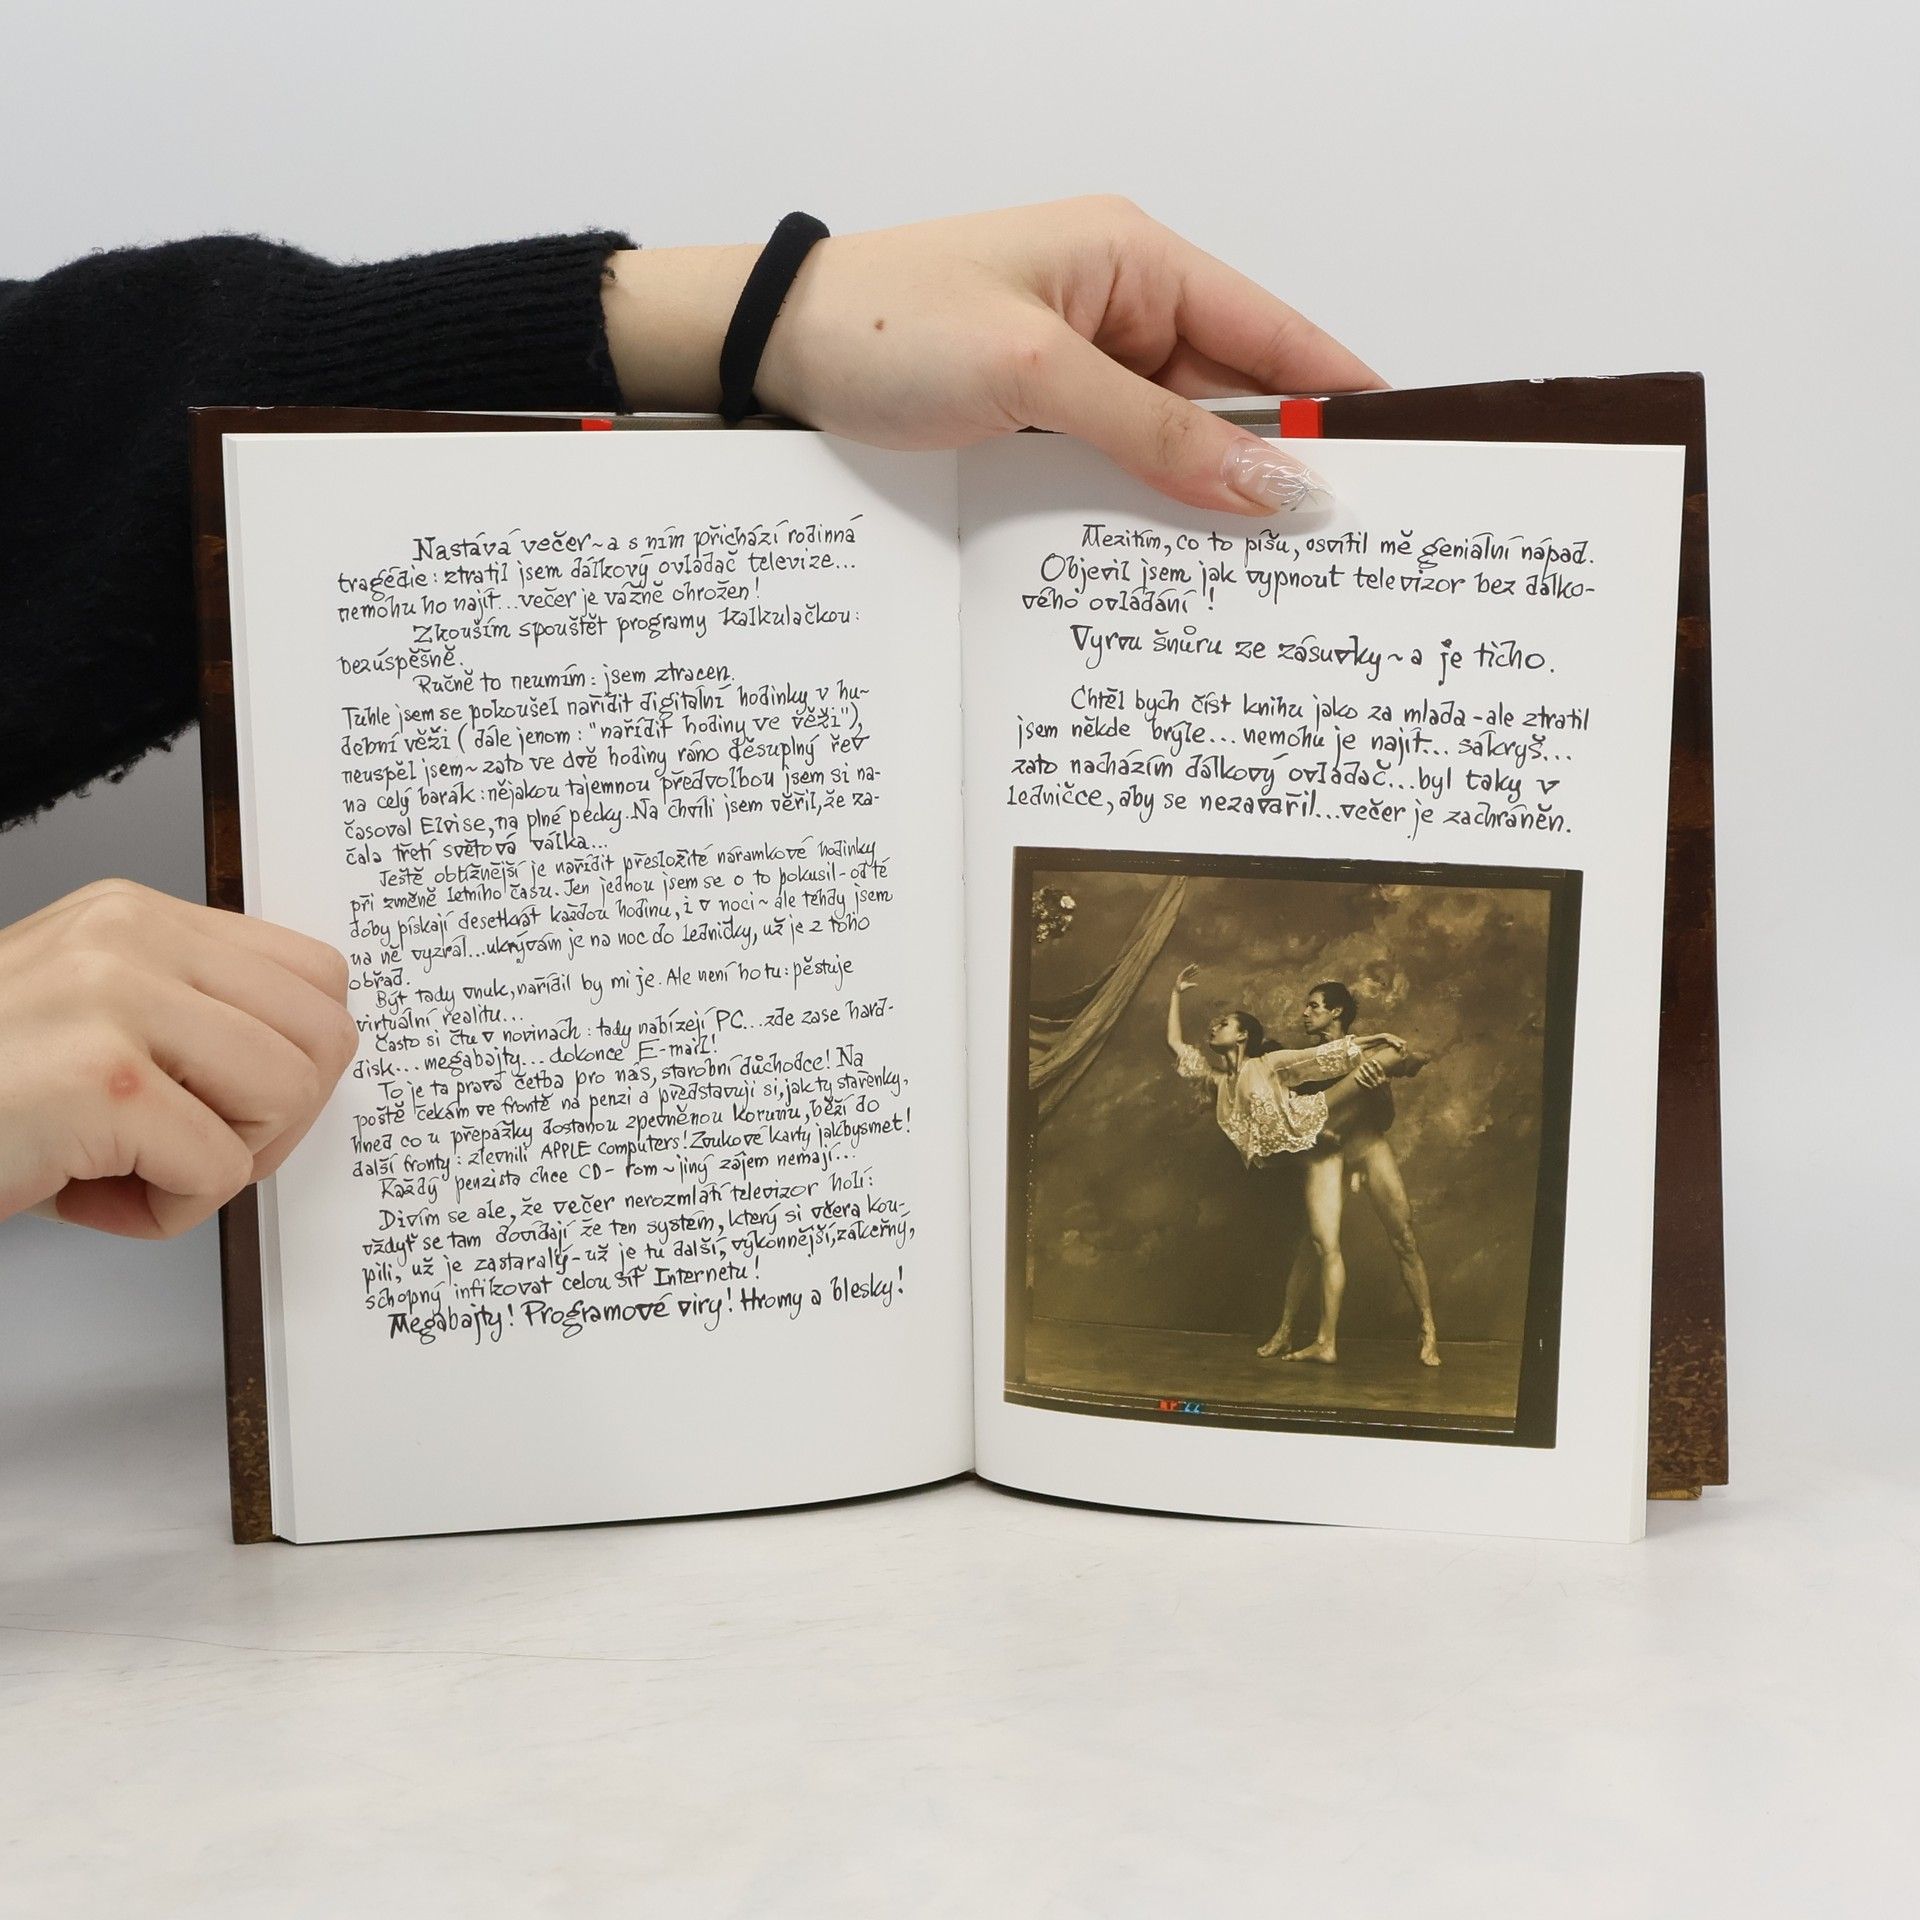 Nastává večer~a s ním přichází rodinná
tragédie: ztratil jsem dálkový ovládač televize...
nemohu ho najít...večer je vážně ohrožen!
Zkouším spouštět programy kalkulačkou:
bezúspěšně.
Ručně to neumím: jsem ztracen.
Tuhle jsem se pokoušel nařídit digitalní hodinky v hu-
dební věži (dále jenom: "nařídit hodiny ve věži"),
neuspěl jsem~zato ve dvě hodiny ráno děsuplný řev
na celý barák: nějakou tajemnou předvolbou jsem si na-
časoval Elvise, na plné pecky. Na chvíli jsem věřil, že za-
čala třetí světová válka...
Ještě obtížnější je nařídit přesložité náramkové hodinky
při změně letního času. Jen jednou jsem se o to pokusil-od té
doby pískají desetkrát každou hodinu, i v noci~ale tehdy jsem
na ně vyzrál...ukrývám je na noc do ledničky, už je z toho
obřad.
Být tady vnuk, nařídil by mi je. Ale není ho tu: pěstuje
virtuální realitu...
Často si čtu v novinách: tady nabízejí PC...zde zase hard-
disk...megabajty...dokonce E-mail!
To je ta pravá četba pro nás, starobní důchodce! Na
poště čekám ve frontě na penzi a představuji si, jak ty stařenky,
hned co u přepážky dostanou zpevněnou korunu, běží do
další fronty: zlevnili APPLE computers! Zvukové karty jakbysmet!
Každý penzista chce CD-rom~jiný zájem nemají...
Divím se ale, že večer nerozmlátí televizor holí:
vždyť se tam dovídají že ten systém, který si včera kou-
pili, už je zastaralý-už je tu další, výkonnější, zákeřný,
schopný infikovat celou síť Internetu!
Megabajty! Programové viry! Hromy a blesky!
Mezitím, co to píšu, osvítil mě geniální nápad.
Objevil jsem jak vypnout televizor bez dálko-
vého ovládání!
Vyrvu šnůru ze zásuvky~a je ticho.
Chtěl bych číst knihu jako za mlada-ale ztratil
jsem někde brýle...nemohu je najít...sakryš...
zato nacházím dálkový ovládač...byl taky v
ledničce, aby se nezavařil...večer je zachráněn.